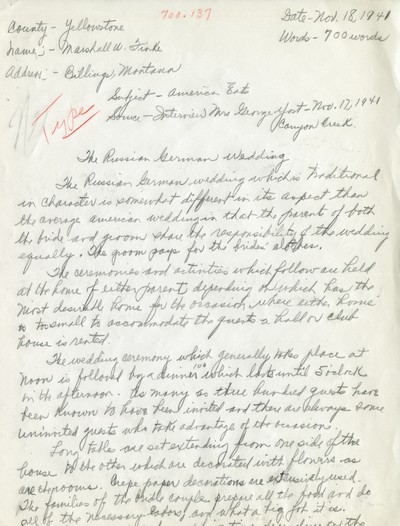 700.137
County - Yellowstone
Date - Nov. 18, 1941
Name; - Marshall W. Finke
Words - 700 words
Address; - Billings, Montana
Subject - America Eats
Type
Source - Interview Mrs George Yost - Nov. 17, 1941
Canyon Creek.
The Russian German Wedding
The Russian German wedding which is traditional
in character is somewhat different in its aspect than
the average american wedding in that the parent of both
the bride and groom share the responsibility of the wedding
equally. The groom pays for the brides' clothes.
The ceremonies and activities which follow are held
at the home of either parent, depending on which has the
most desirable home for the occasion, where either home
is to small to accommodate the guests a hall or club
house is rented.
The wedding ceremony which generally takes place at
noon is followed by a dinner which lasts until 5 o'clock
in the afternoon. As many as three hundred guests have
been known to have been invited and there are always some
uninvited guests who take advantage of the occasion.
Long tables are set extending from one side of the
house to the other which are decorated with flowers as
are the rooms. Crepe paper decorations are extensively used.
The families of the bridle couple prepare all the food and do
all of the necessary labor, and what a big job it is.